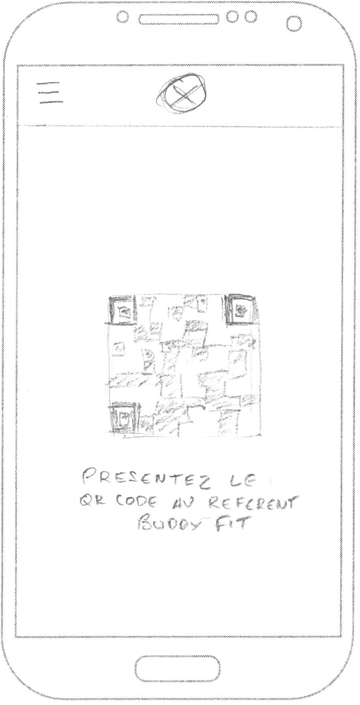 PRESENTEZ LE
QR CODE AU REFERENT
BUDDY FIT